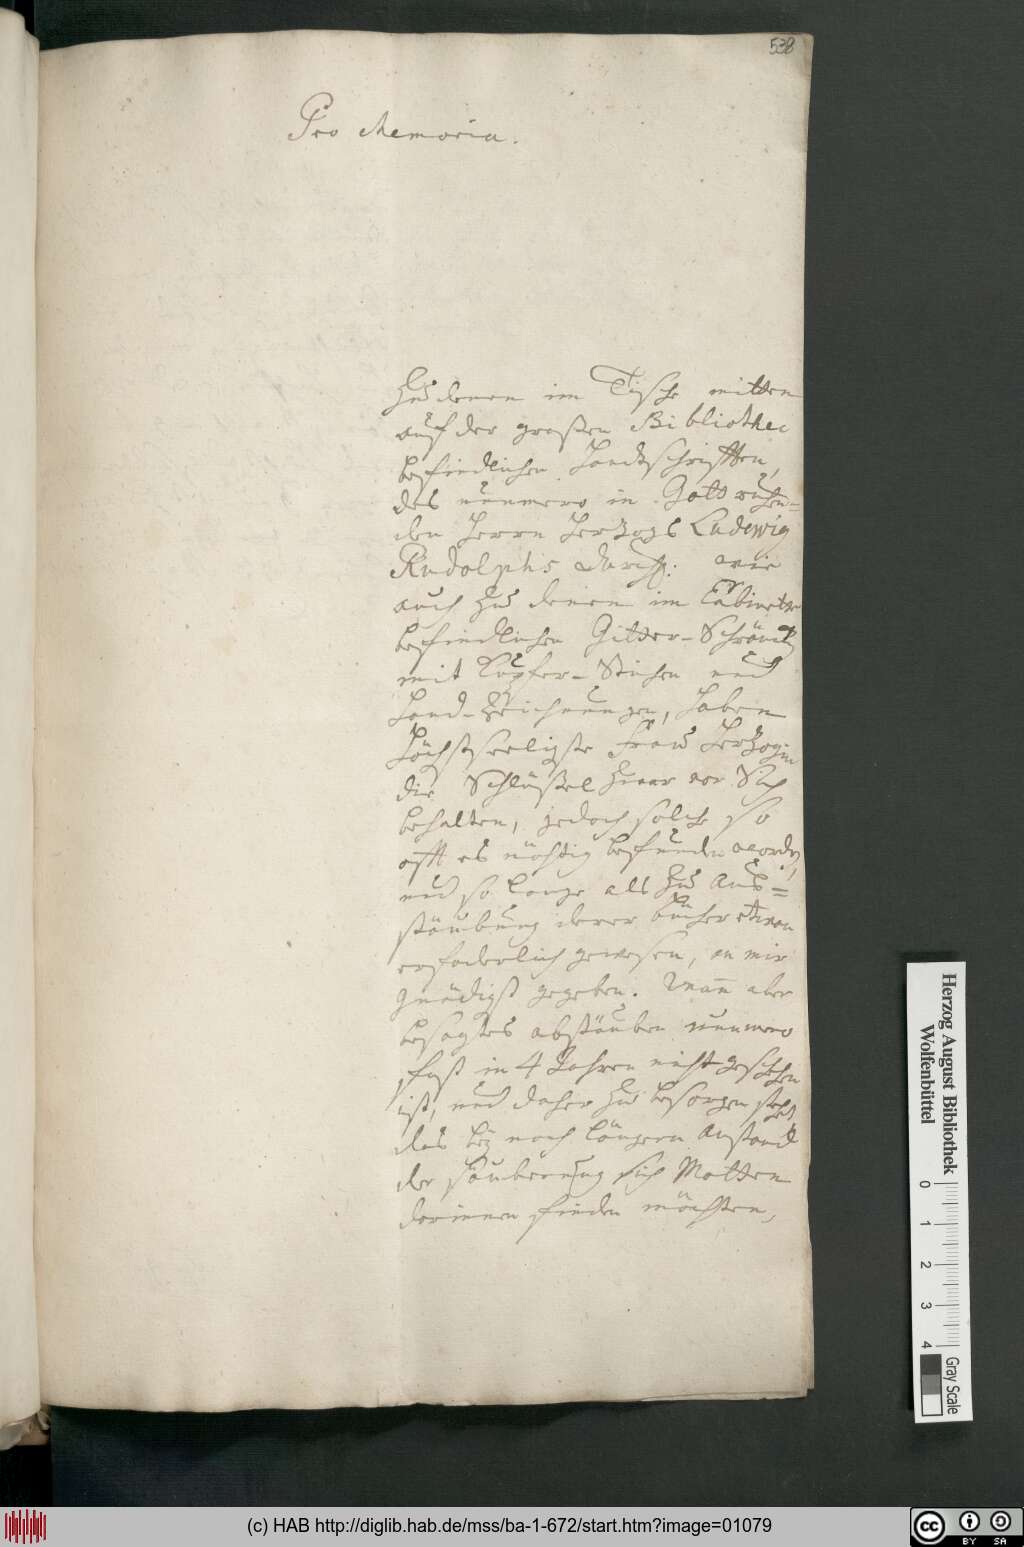 538
Pro Memoria.
Zu denen im Tische mitten
auf der großen Bibliothec
befindlichen Handtschrifften,
des nunmero in Gott ruhen=
den Herrn Hertzogs Ludewig
Rudolphs Durchl: wie
auch zu denen im Cabinette
befindlichen Gitter-Schränck
mit Kupfer-Stichen und
Hand-Zeichnungen, haben
Höchstseeligste Frau Hertzogin
die Schlüßel zwar vor Sich
behalten, jedoch solche so
offt es nöhtig befunden worden,
und so lange als zu Aus=
stäubung derer Bücher etwan
erfoderlich gewesen, an mir
gnädigst gegeben. Wann aber
besagtes abstäuben nunmero
fast in 4 Jahren nicht geschehen
ist, und daher zu besorgen steht
das bey noch längern Anstand
der säuberung sich Motten
darinnen finden möchten,
Herzog August Bibliothek
Wolfenbüttel
0 1 2 3 4
Gray Scale
(c) HAB http://diglib.hab.de/mss/ba-1-672/start.htm?image=01079
cc BY SA